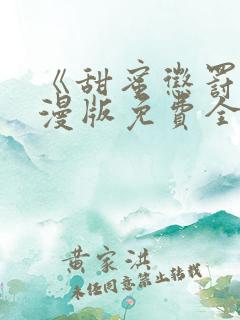 《甜蜜懲罰
漫版免費全
黄家洪
未经同意禁止转载